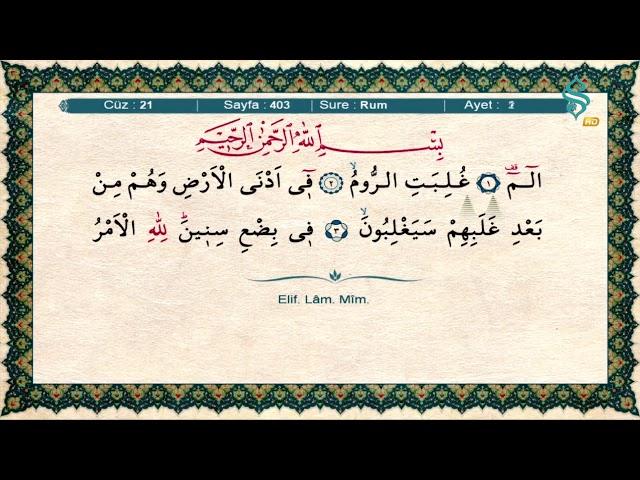 Cüz : 21 | Sayfa : 403 | Sure : Rum | Ayet :
بِسْمِ اللّٰهِ الرَّحْمٰنِ الرَّحِيمِ
الٓمٓ ۚ ﴿١﴾ غُلِبَتِ الرُّومُ ۙ ﴿٢﴾ فٖٓى اَدْنَى الْاَرْضِ وَهُمْ مِنْ
بَعْدِ غَلَبِهِمْ سَيَغْلِبُونَ ۙ ﴿٣﴾ فٖى بِضْعِ سِنٖينَ ؕ لِلّٰهِ الْاَمْرُ
Elif. Lâm. Mîm.
HD